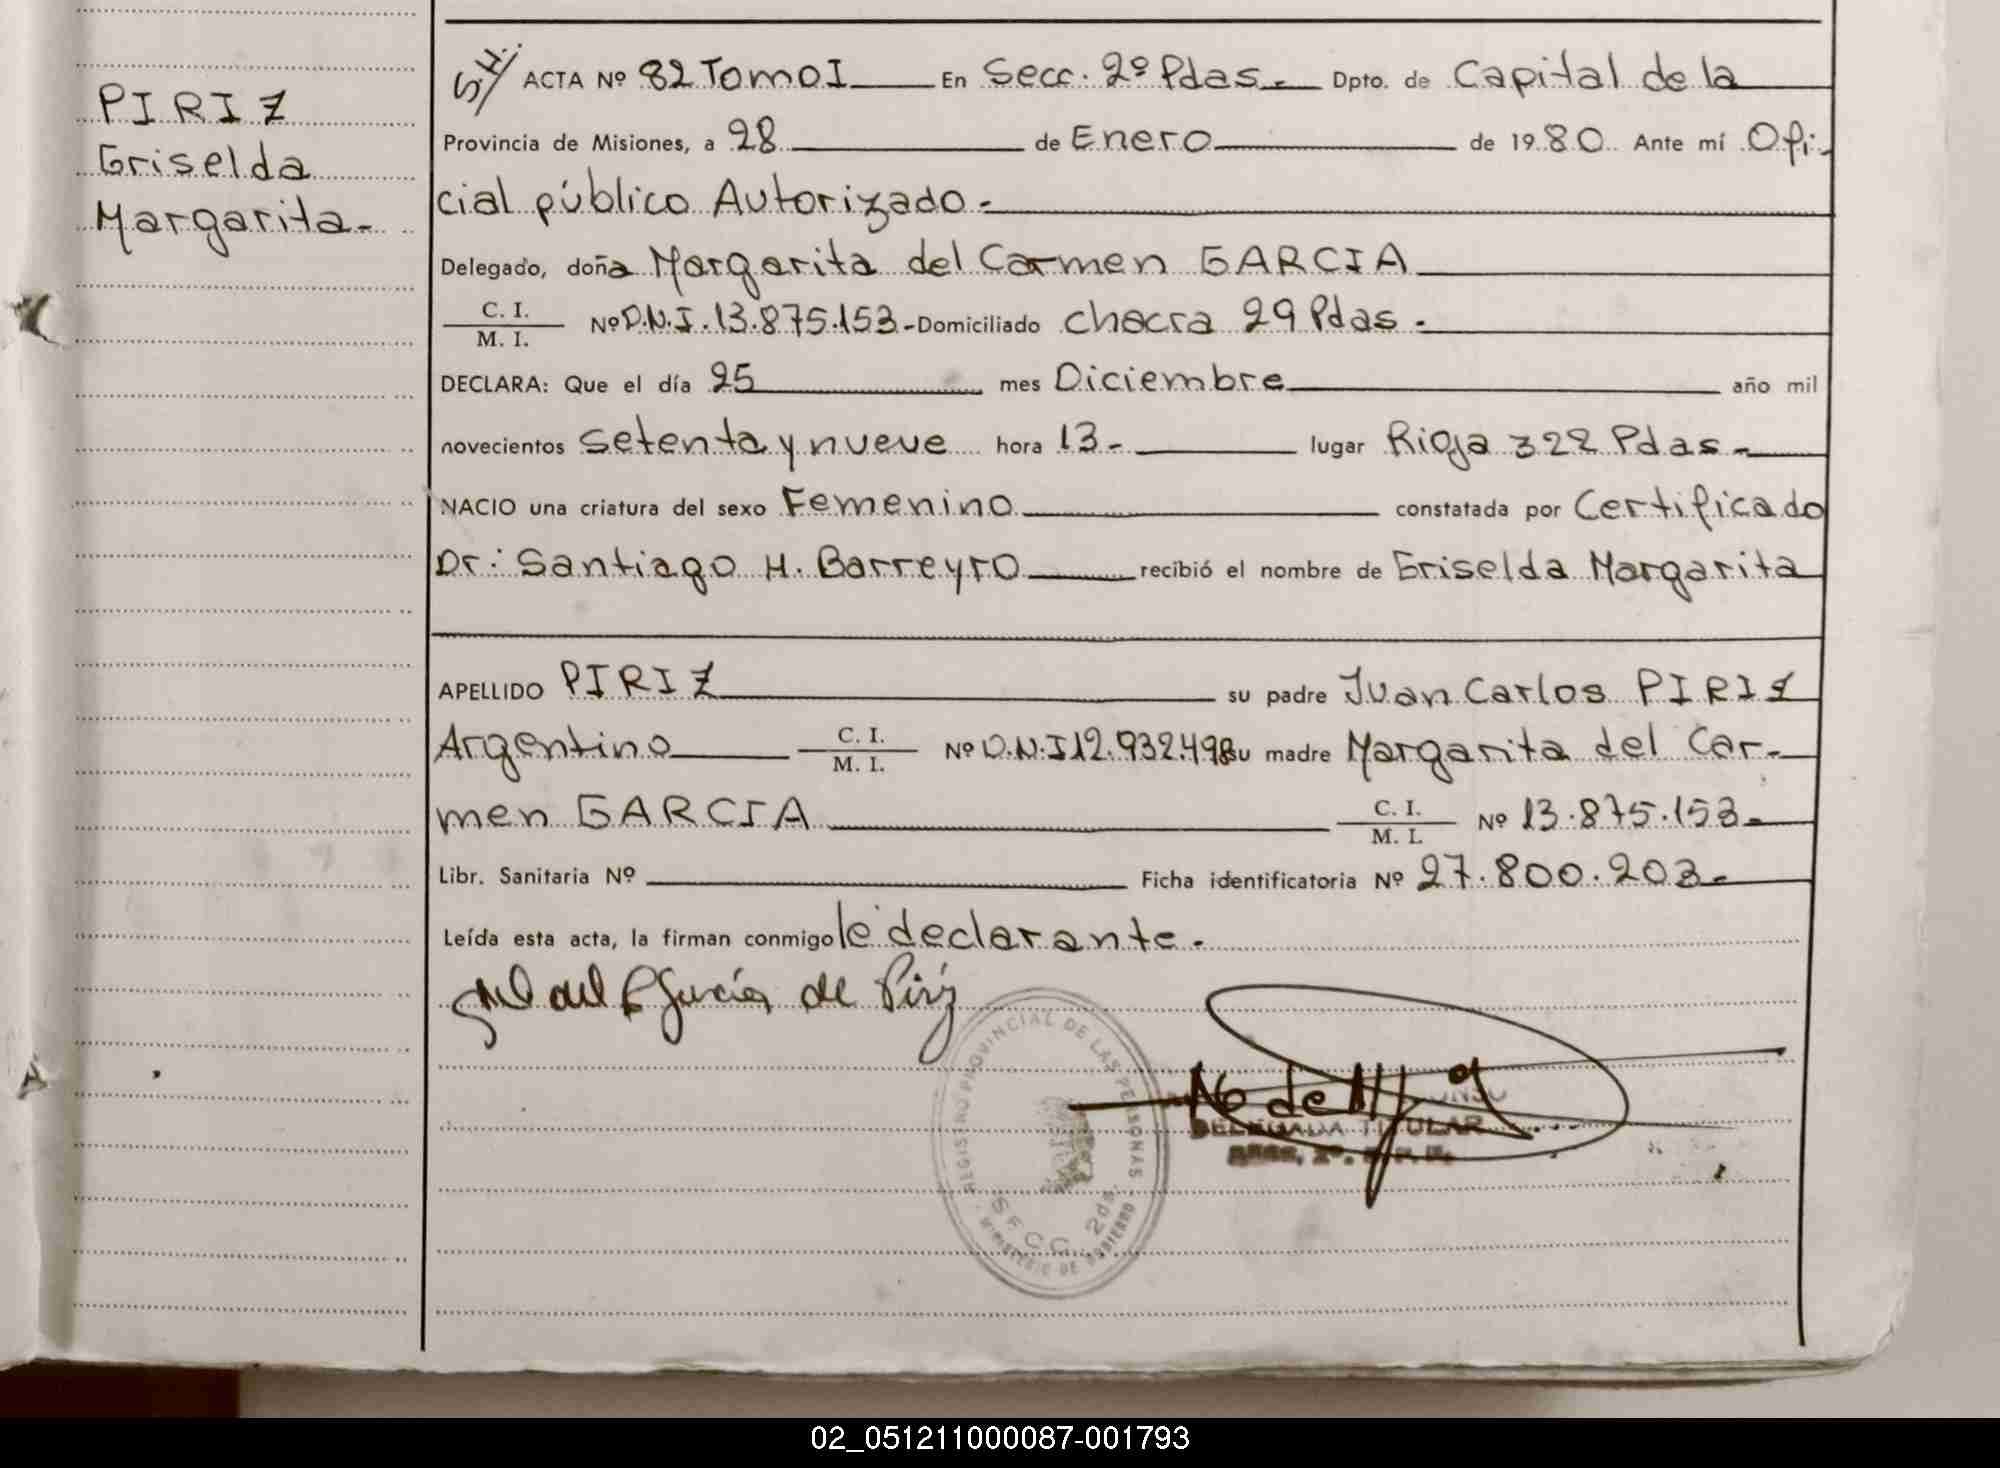 PIRIZ
Griselda
Margarita-
S.H.
ACTA Nº 82 Tomo I En Secc. 2º Pdas.- Dpto. de Capital de la
Provincia de Misiones, a 28 de Enero de 1980. Ante mí Ofi-
cial público Autorizado-
Delegado, doña Margarita del Carmen GARCIA
C. I.
M. I. Nº D.N.I. 13.875.153- Domiciliado chacra 29 Pdas-
DECLARA: Que el día 25 mes Diciembre año mil
novecientos setenta y nueve hora 13- lugar Rioja 322 Pdas-
NACIO una criatura del sexo Femenino constatada por Certificado
Dr: Santiago H. Barreyro recibió el nombre de Griselda Margarita
APELLIDO PIRIZ su padre Juan Carlos PIRIZ
Argentino C. I.
M. I. Nº D.N.I 12.932.498 su madre Margarita del Car-
men GARCIA C. I.
M. I. Nº 13.875.153-
Libr. Sanitaria Nº Ficha identificatoria Nº 27.800.203-
Leída esta acta, la firman conmigo le declarante-
García de Piriz
REGISTRO PROVINCIAL DE LAS PERSONAS
MINISTERIO DE GOBIERNO
DELEGADA TITULAR
02_051211000087-001793